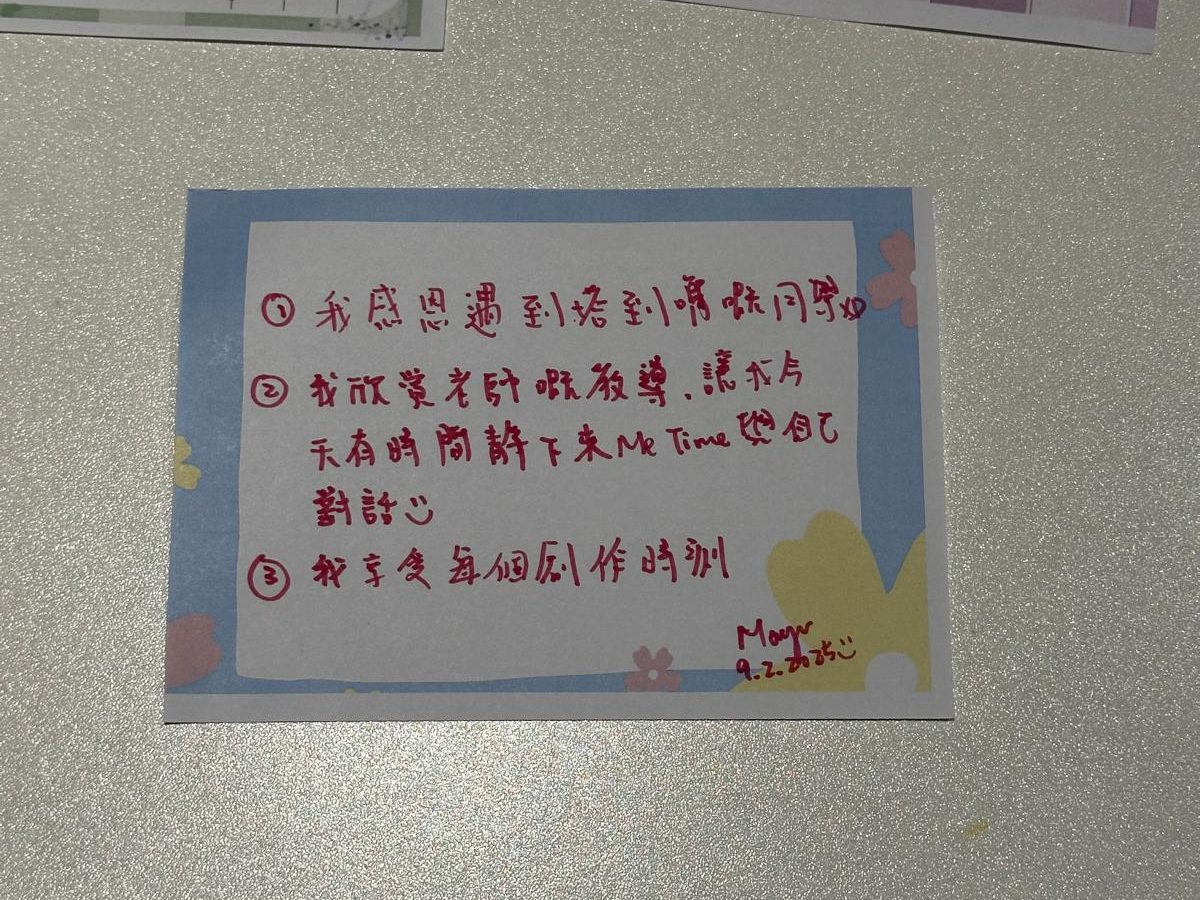 ① 我感恩遇到搭到嗎嘅同學XD
② 我欣賞老師嘅教導,讓我今
天有時間靜下來Me Time與自己
對話
③ 我享受每個創作時刻
9.2.2025